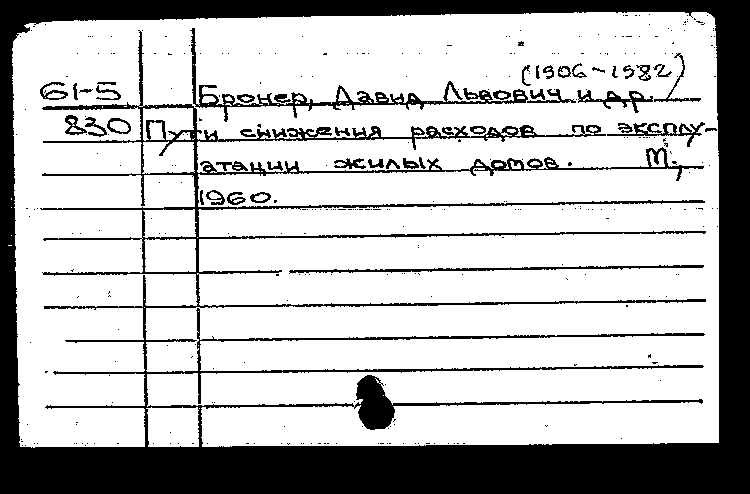 (1906-1982)
61-5 Бронер, Давид Львович и др.
830 Пути снижения расходов по эксплу-
атации жилых домов. М.,
1960.